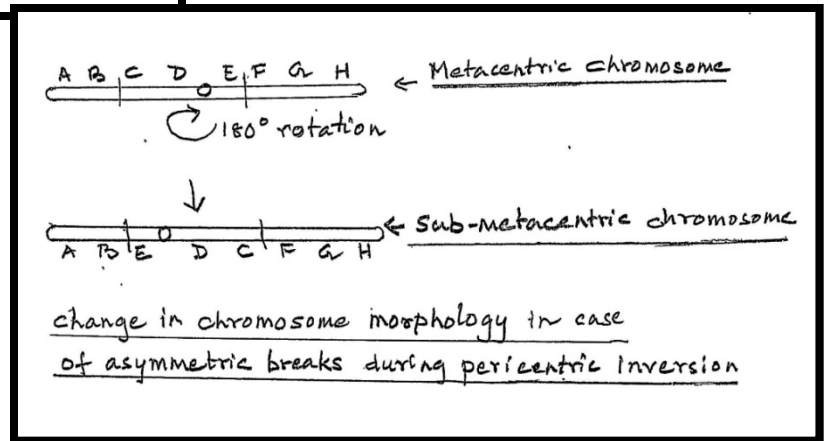 A B C D E F G H ← Metacentric chromosome
180° rotation
↓
← Sub-metacentric chromosome
A B E D C F G H
change in chromosome morphology in case
of asymmetric breaks during pericentric inversion